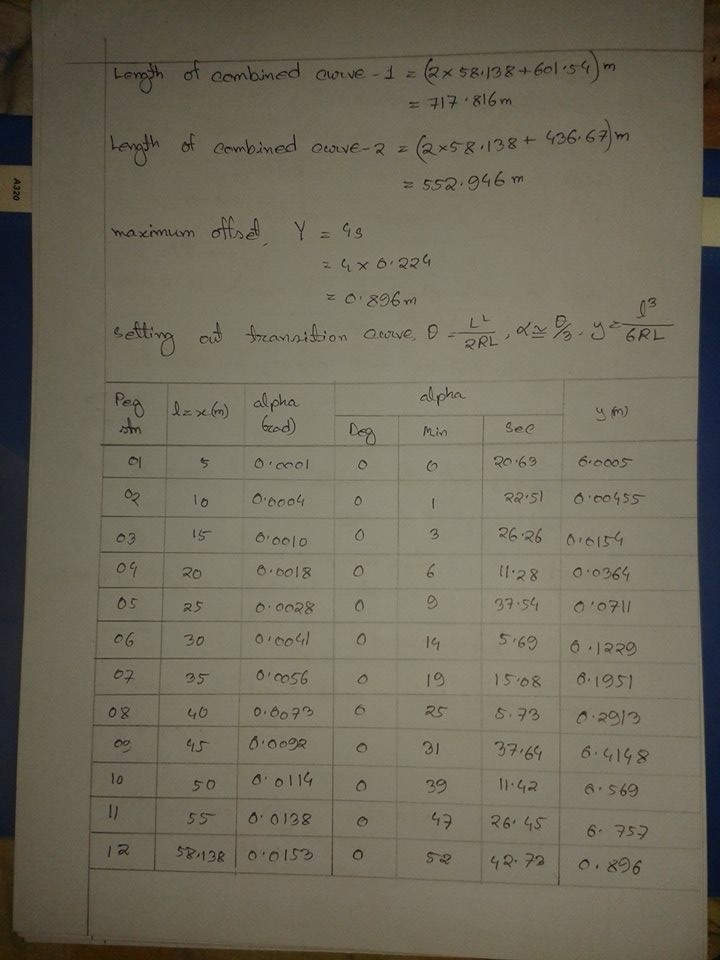 Length of combined curve-1 = (2×58.138+601.54)m
= 717.816m
Length of combined curve-2 = (2×58.138+ 436.67)m
= 552.946 m
A320
maximum offset, Y = 4s
= 4 × 0.224
= 0.896m
setting out transition curve, θ = L²/2RL, α ≃ θ/3, y = l³/6RL
Peg stn | l=x(m) | alpha (rad) | alpha | y(m)
Deg | Min | Sec
01 5 0.0001 0 0 20.63 0.0005
02 10 0.0004 0 1 22.51 0.00455
03 15 0.0010 0 3 26.26 0.0154
04 20 0.0018 0 6 11.28 0.0364
05 25 0.0028 0 9 37.54 0.0711
06 30 0.0041 0 14 5.69 0.1229
07 35 0.0056 0 19 15.08 0.1951
08 40 0.0073 0 25 5.73 0.2913
09 45 0.0092 0 31 37.64 0.4148
10 50 0.0114 0 39 11.42 0.569
11 55 0.0138 0 47 26.45 0.757
12 58.138 0.0153 0 52 42.73 0.896